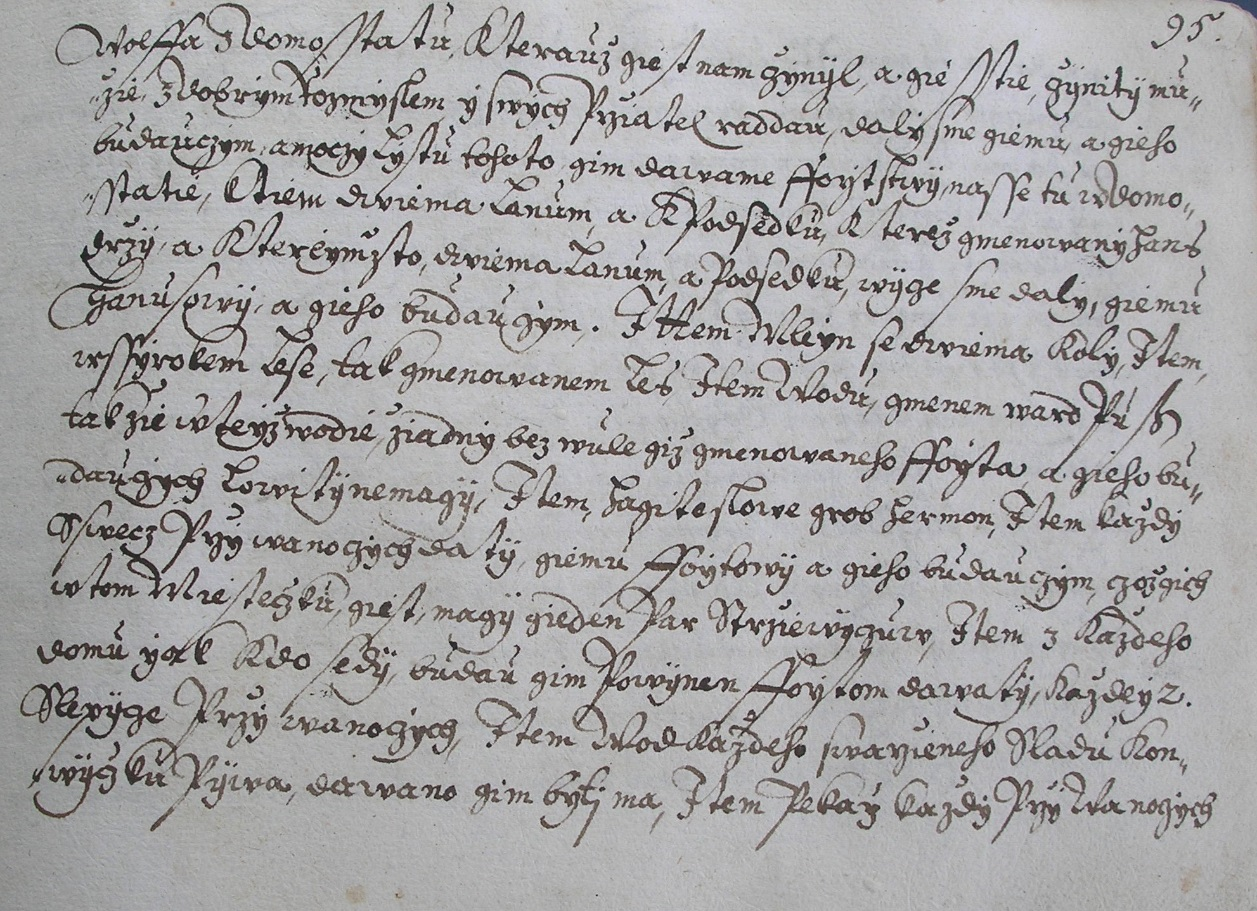 95.
Wolffa z Domosstatu, kterauž giest nam žynyl, a gie sstie, žynity mu„
„zie, z dobrym rozmyslem, y swych Prziatel raddau, daly sme giemu, a gieho
budauczym, a moczy lystu tohoto, gim dawame ffoytstwy nasse tu w Domo„
„sstatie, s tiem dwiema Lanum, a k Podsedku, kterež gmenowany Hans
drzy, a kterymžto, dwiema Lanum, a Podsedku, wyge sme daly, giemu
Hanusowy, a gieho budaugym. Ittem Mleyn se dwiema koly, Item,
w ssyrokem lese, tak gmenowanem les Item Wodu, gmenem ward
takžie w teyž wodie, žiadny bez wule giž gmenowaneho ffoyta, a gieho bu„
„daugych lowity nemagy, Item, hagite slowe grob hermon, Item každy
Sswecz Przy wanoczych daty, giemu ffoytowy a gieho budauczym, czož gich
w tom Miesteczku, giest, magy gieden Par Strziewyczuw, Item z každeho
domu yak kdo sedy, budau gim Powynen ffoytom dawaty, každey 2.
Slepyge Przy wanogych, Item Wod každeho swarzeneho Sladu kon„
„wyczku Pywa, dawano gim byti ma, Item Pekarz každy Przy Wanogych